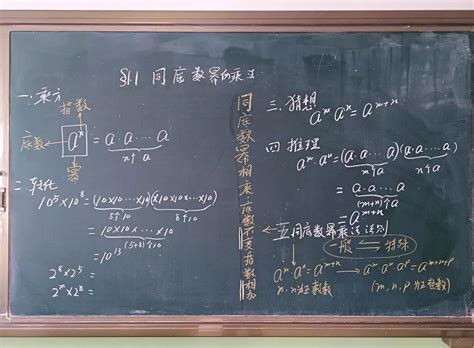 §1.1 同底数幂的乘法
一.乘方
指数
底数 aⁿ = a·a…a
n个a
幂
二.转化
10⁵×10⁸=(10×10×…×10)(10×10×…×10)
5个10 8个10
=10×10×…×10
(5+8)个10
=10¹³
2⁸×2⁵=
2ᵐ×2ⁿ=
同底数幂相乘 底数不变指数相加
三.猜想
aᵐ aⁿ=aᵐ⁺ⁿ
四 推理
aᵐ·aⁿ=(a·a…a)(a·a…a)
m个a n个a
=a·a…a
(m+n)个a
=aᵐ⁺ⁿ
五.同底数幂乘法法则
一般 特殊
aᵐ·aⁿ=aᵐ⁺ⁿ → aᵐ·aⁿ·aᵖ=aᵐ⁺ⁿ⁺ᵖ
m,n为正整数 (m,n,p为正整数)